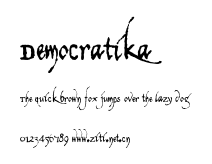 Democratika
The quick brown fox jumps over the lazy dog
0123456789 www.ziti.net.cn